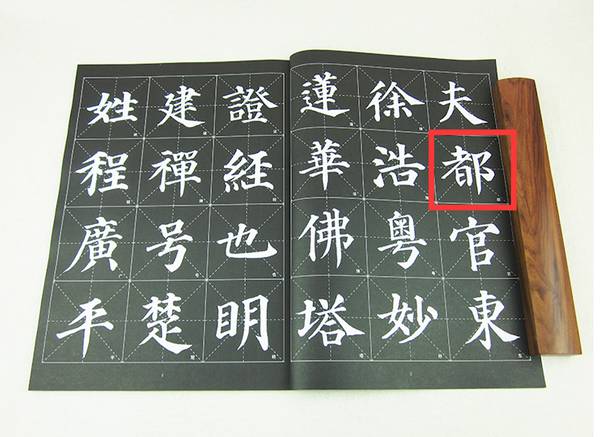 夫都官東
徐浩粤妙
蓮華佛塔
證経也明
建禪号楚
姓程廣平